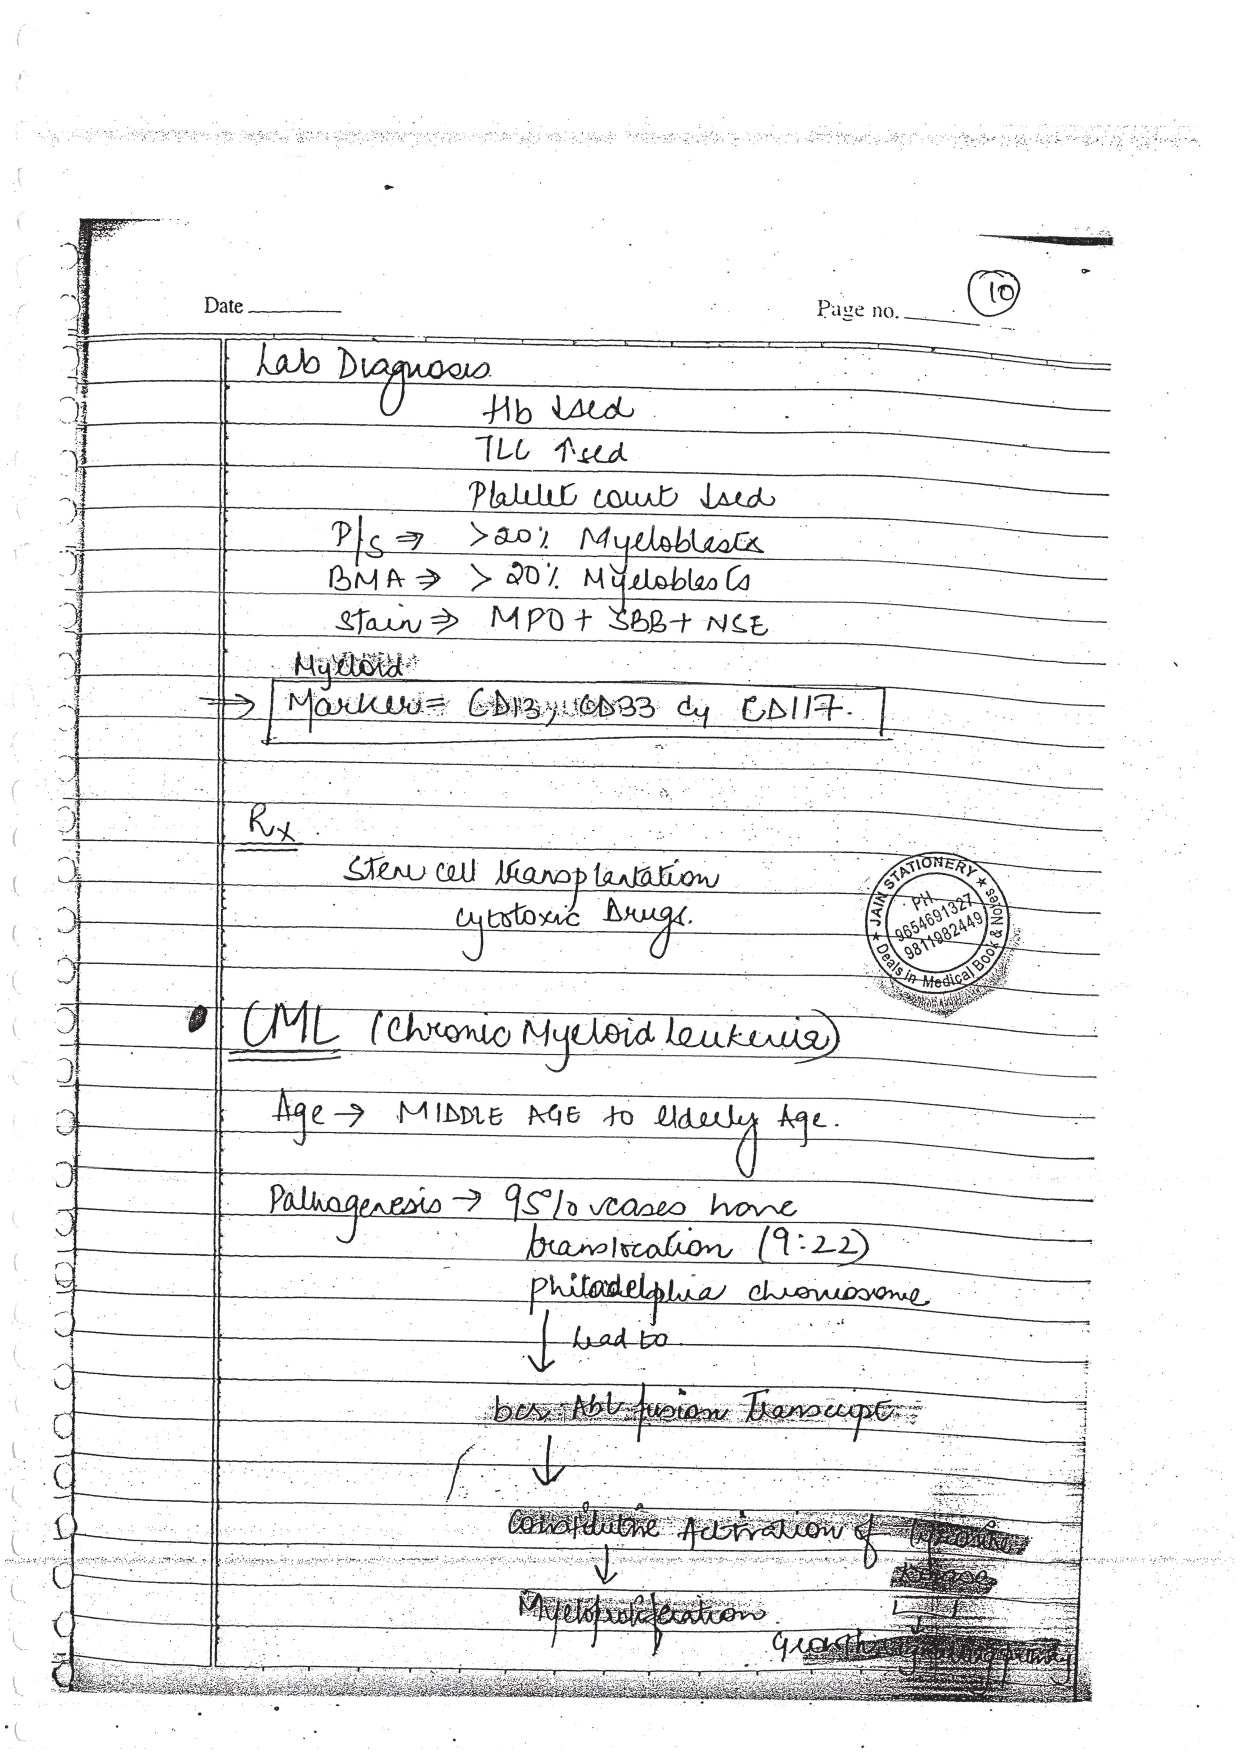 10
Date
Page no.
Lab Diagnosis
Hb ↓sed
TLC ↑sed
Platelet count ↓sed
P/S ⇒ >20% Myeloblasts
BMA ⇒ > 20% Myeloblasts
Stain ⇒ MPO + SBB + NSE
Myeloid
→ Marker = CD13, CD33 Cy CD117.
Rx
Stem cell transplantation
cytotoxic Drugs.
★ JAIN STATIONERY ★
PH.
9654691327
9811982449
Deals in Medical Book & Notes
CML (Chronic Myeloid leukemia)
Age → MIDDLE AGE to elderly Age.
Pathogenesis → 95% cases have
translocation (9:22)
philadelphia chromosome
↓ lead to
bcr-Abl fusion Transcript
↓
Constitutive Activation of tyrosine
kinase
↓
Myeloproliferation.
Growth